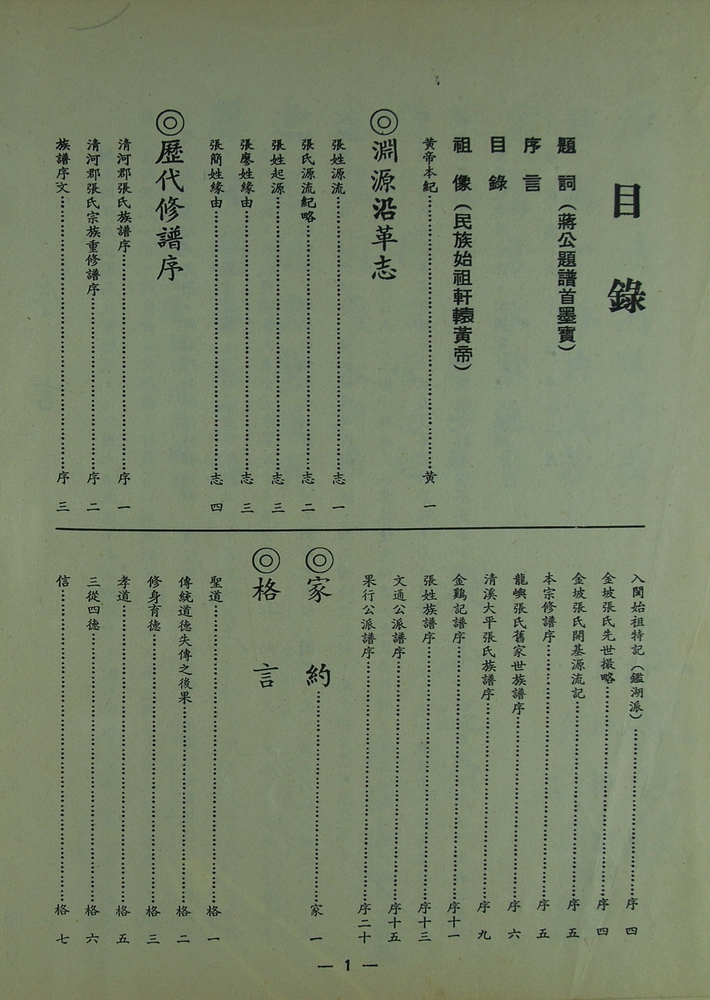 目錄
題詞（蔣公題譜首墨寶）
序言
目錄
祖像（民族始祖軒轅黃帝）
黃帝本紀……黃一
◎淵源沿革志
張姓源流……志一
張氏源流紀略……志二
張姓起源……志三
張廖姓緣由……志三
張簡姓緣由……志四
◎歷代修譜序
清河郡張氏族譜序……序一
清河郡張氏宗族重修譜序……序二
族譜序文……序三
入閩始祖特記（鑑湖派）……序四
金坡張氏先世撮略……序四
金坡張氏開基源流記……序五
本宗修譜序……序五
龍嶼張氏舊家世族譜序……序六
清溪大平張氏族譜序……序九
金鷄記譜序……序十一
張姓族譜序……序十三
文通公派譜序……序十五
果行公派譜序……序二十
◎家約……家一
◎格言
聖道……格一
傳統道德失傳之後果……格二
修身育德……格三
孝道……格五
三從四德……格六
信……格七
— 1 —